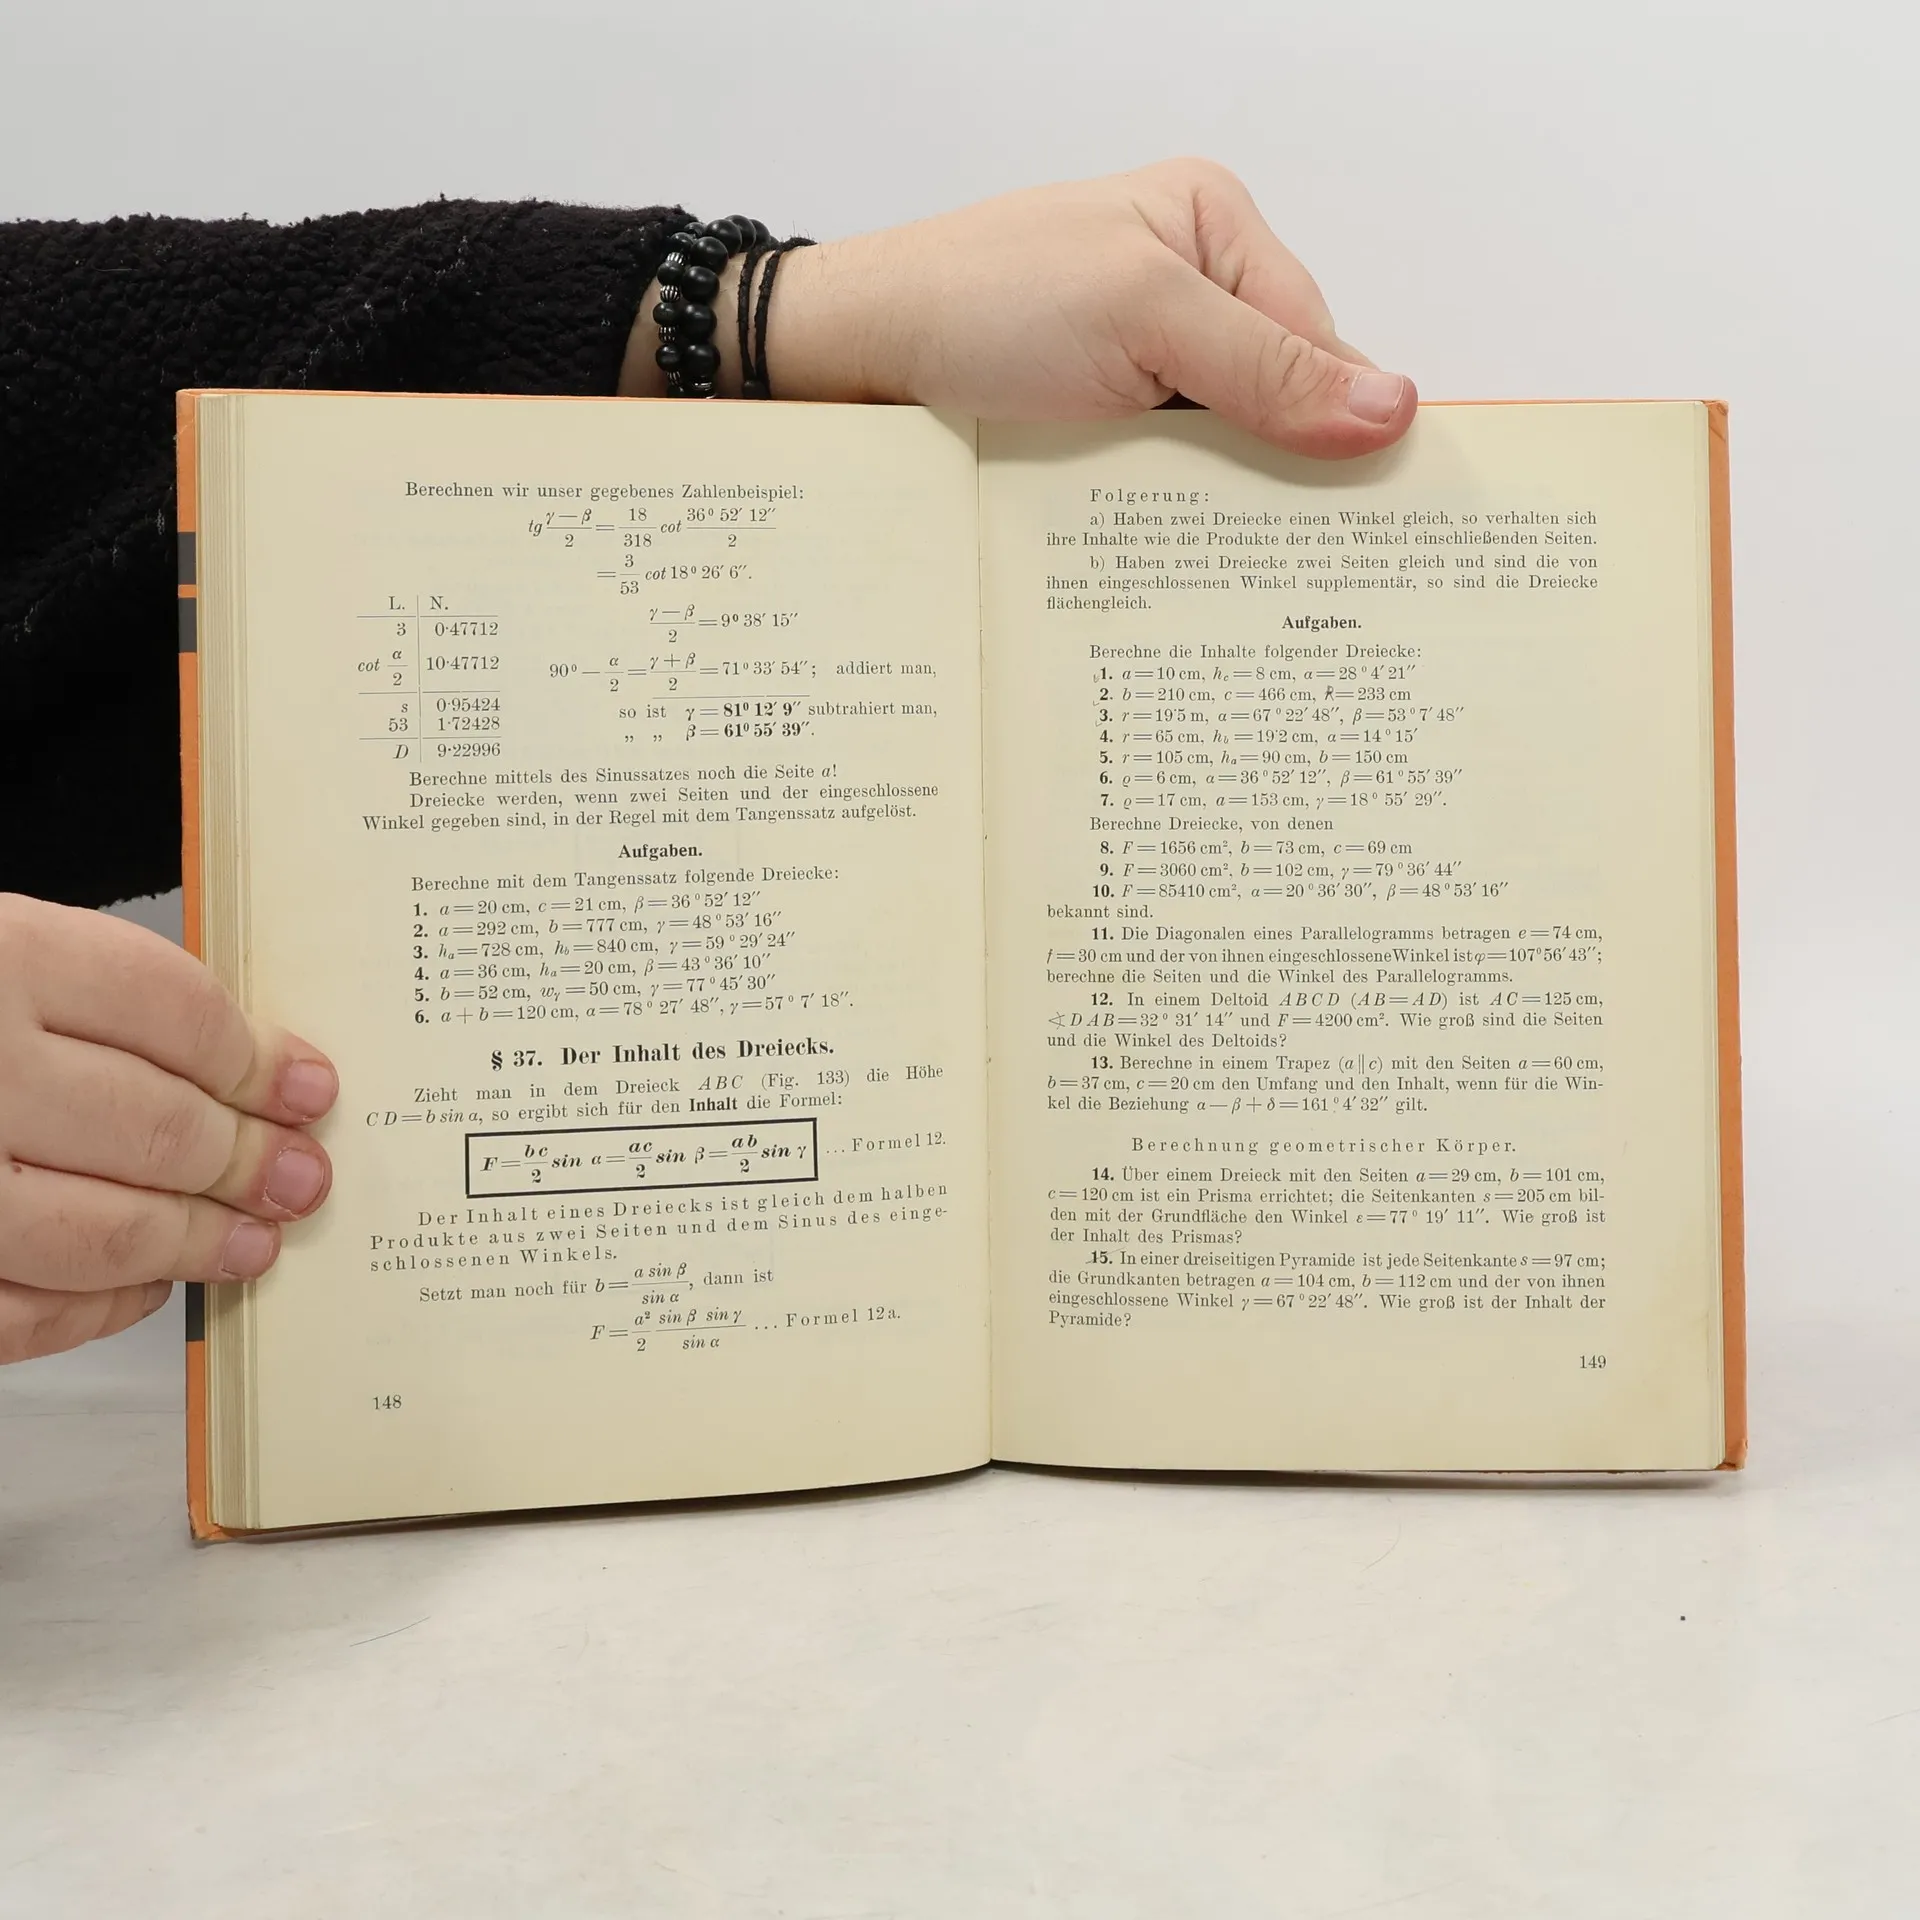 Berechnen wir unser gegebenes Zahlenbeispiel:
tg (γ—β)/2 = 18/318 cot 36° 52′ 12″/2
= 3/53 cot 18° 26′ 6″.
L. | N.
3 | 0·47712
cot α/2 | 10·47712
s | 0·95424
53 | 1·72428
D | 9·22996
(γ—β)/2 = 9° 38′ 15″
90° — α/2 = (γ+β)/2 = 71° 33′ 54″; addiert man,
so ist γ = 81° 12′ 9″ subtrahiert man,
„ „ β = 61° 55′ 39″.
Berechne mittels des Sinussatzes noch die Seite a!
Dreiecke werden, wenn zwei Seiten und der eingeschlossene
Winkel gegeben sind, in der Regel mit dem Tangenssatz aufgelöst.
Aufgaben.
Berechne mit dem Tangenssatz folgende Dreiecke:
1. a = 20 cm, c = 21 cm, β = 36° 52′ 12″
2. a = 292 cm, b = 777 cm, γ = 48° 53′ 16″
3. hₐ = 728 cm, h_b = 840 cm, γ = 59° 29′ 24″
4. a = 36 cm, hₐ = 20 cm, β = 43° 36′ 10″
5. b = 52 cm, w_γ = 50 cm, γ = 77° 45′ 30″
6. a + b = 120 cm, α = 78° 27′ 48″, γ = 57° 7′ 18″.
§ 37. Der Inhalt des Dreiecks.
Zieht man in dem Dreieck ABC (Fig. 133) die Höhe
CD = b sin α, so ergibt sich für den Inhalt die Formel:
F = bc/2 sin α = ac/2 sin β = ab/2 sin γ ... Formel 12.
Der Inhalt eines Dreiecks ist gleich dem halben
Produkte aus zwei Seiten und dem Sinus des einge-
schlossenen Winkels.
Setzt man noch für b = a sin β/sin α, dann ist
F = a²/2 sin β sin γ/sin α ... Formel 12a.
148
Folgerung:
a) Haben zwei Dreiecke einen Winkel gleich, so verhalten sich
ihre Inhalte wie die Produkte der den Winkel einschließenden Seiten.
b) Haben zwei Dreiecke zwei Seiten gleich und sind die von
ihnen eingeschlossenen Winkel supplementär, so sind die Dreiecke
flächengleich.
Aufgaben.
Berechne die Inhalte folgender Dreiecke:
1. a = 10 cm, h_c = 8 cm, α = 28° 4′ 21″
2. b = 210 cm, c = 466 cm, R = 233 cm
3. r = 19·5 m, α = 67° 22′ 48″, β = 53° 7′ 48″
4. r = 65 cm, h_b = 19·2 cm, α = 14° 15′
5. r = 105 cm, hₐ = 90 cm, b = 150 cm
6. ϱ = 6 cm, α = 36° 52′ 12″, β = 61° 55′ 39″
7. ϱ = 17 cm, a = 153 cm, γ = 18° 55′ 29″.
Berechne Dreiecke, von denen
8. F = 1656 cm², b = 73 cm, c = 69 cm
9. F = 3060 cm², b = 102 cm, γ = 79° 36′ 44″
10. F = 85410 cm², α = 20° 36′ 30″, β = 48° 53′ 16″
bekannt sind.
11. Die Diagonalen eines Parallelogramms betragen e = 74 cm,
f = 30 cm und der von ihnen eingeschlossene Winkel ist φ = 107° 56′ 43″;
berechne die Seiten und die Winkel des Parallelogramms.
12. In einem Deltoid ABCD (AB = AD) ist AC = 125 cm,
∢ DAB = 32° 31′ 14″ und F = 4200 cm². Wie groß sind die Seiten
und die Winkel des Deltoids?
13. Berechne in einem Trapez (a ∥ c) mit den Seiten a = 60 cm,
b = 37 cm, c = 20 cm den Umfang und den Inhalt, wenn für die Win-
kel die Beziehung α — β + δ = 161° 4′ 32″ gilt.
Berechnung geometrischer Körper.
14. Über einem Dreieck mit den Seiten a = 29 cm, b = 101 cm,
c = 120 cm ist ein Prisma errichtet; die Seitenkanten s = 205 cm bil-
den mit der Grundfläche den Winkel ε = 77° 19′ 11″. Wie groß ist
der Inhalt des Prismas?
15. In einer dreiseitigen Pyramide ist jede Seitenkante s = 97 cm;
die Grundkanten betragen a = 104 cm, b = 112 cm und der von ihnen
eingeschlossene Winkel γ = 67° 22′ 48″. Wie groß ist der Inhalt der
Pyramide?
149